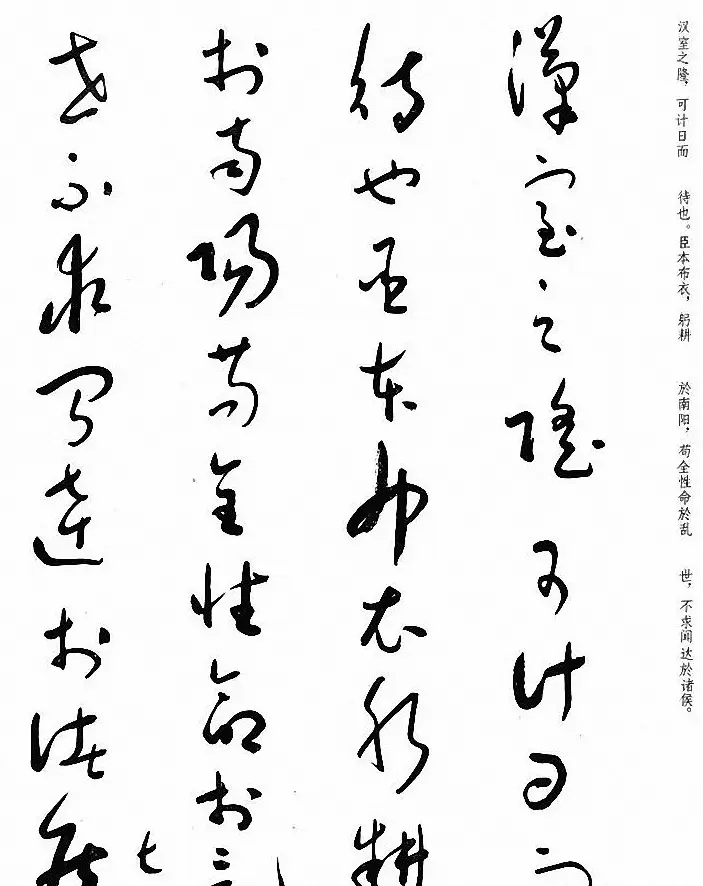 漢室之隆可计日而
待也臣本布衣躬耕
於南陽苟全性命於乱
世不求闻達於诸侯
七
汉室之隆，可计日而
待也。臣本布衣，躬耕
於南阳，苟全性命於乱
世，不求闻达於诸侯。